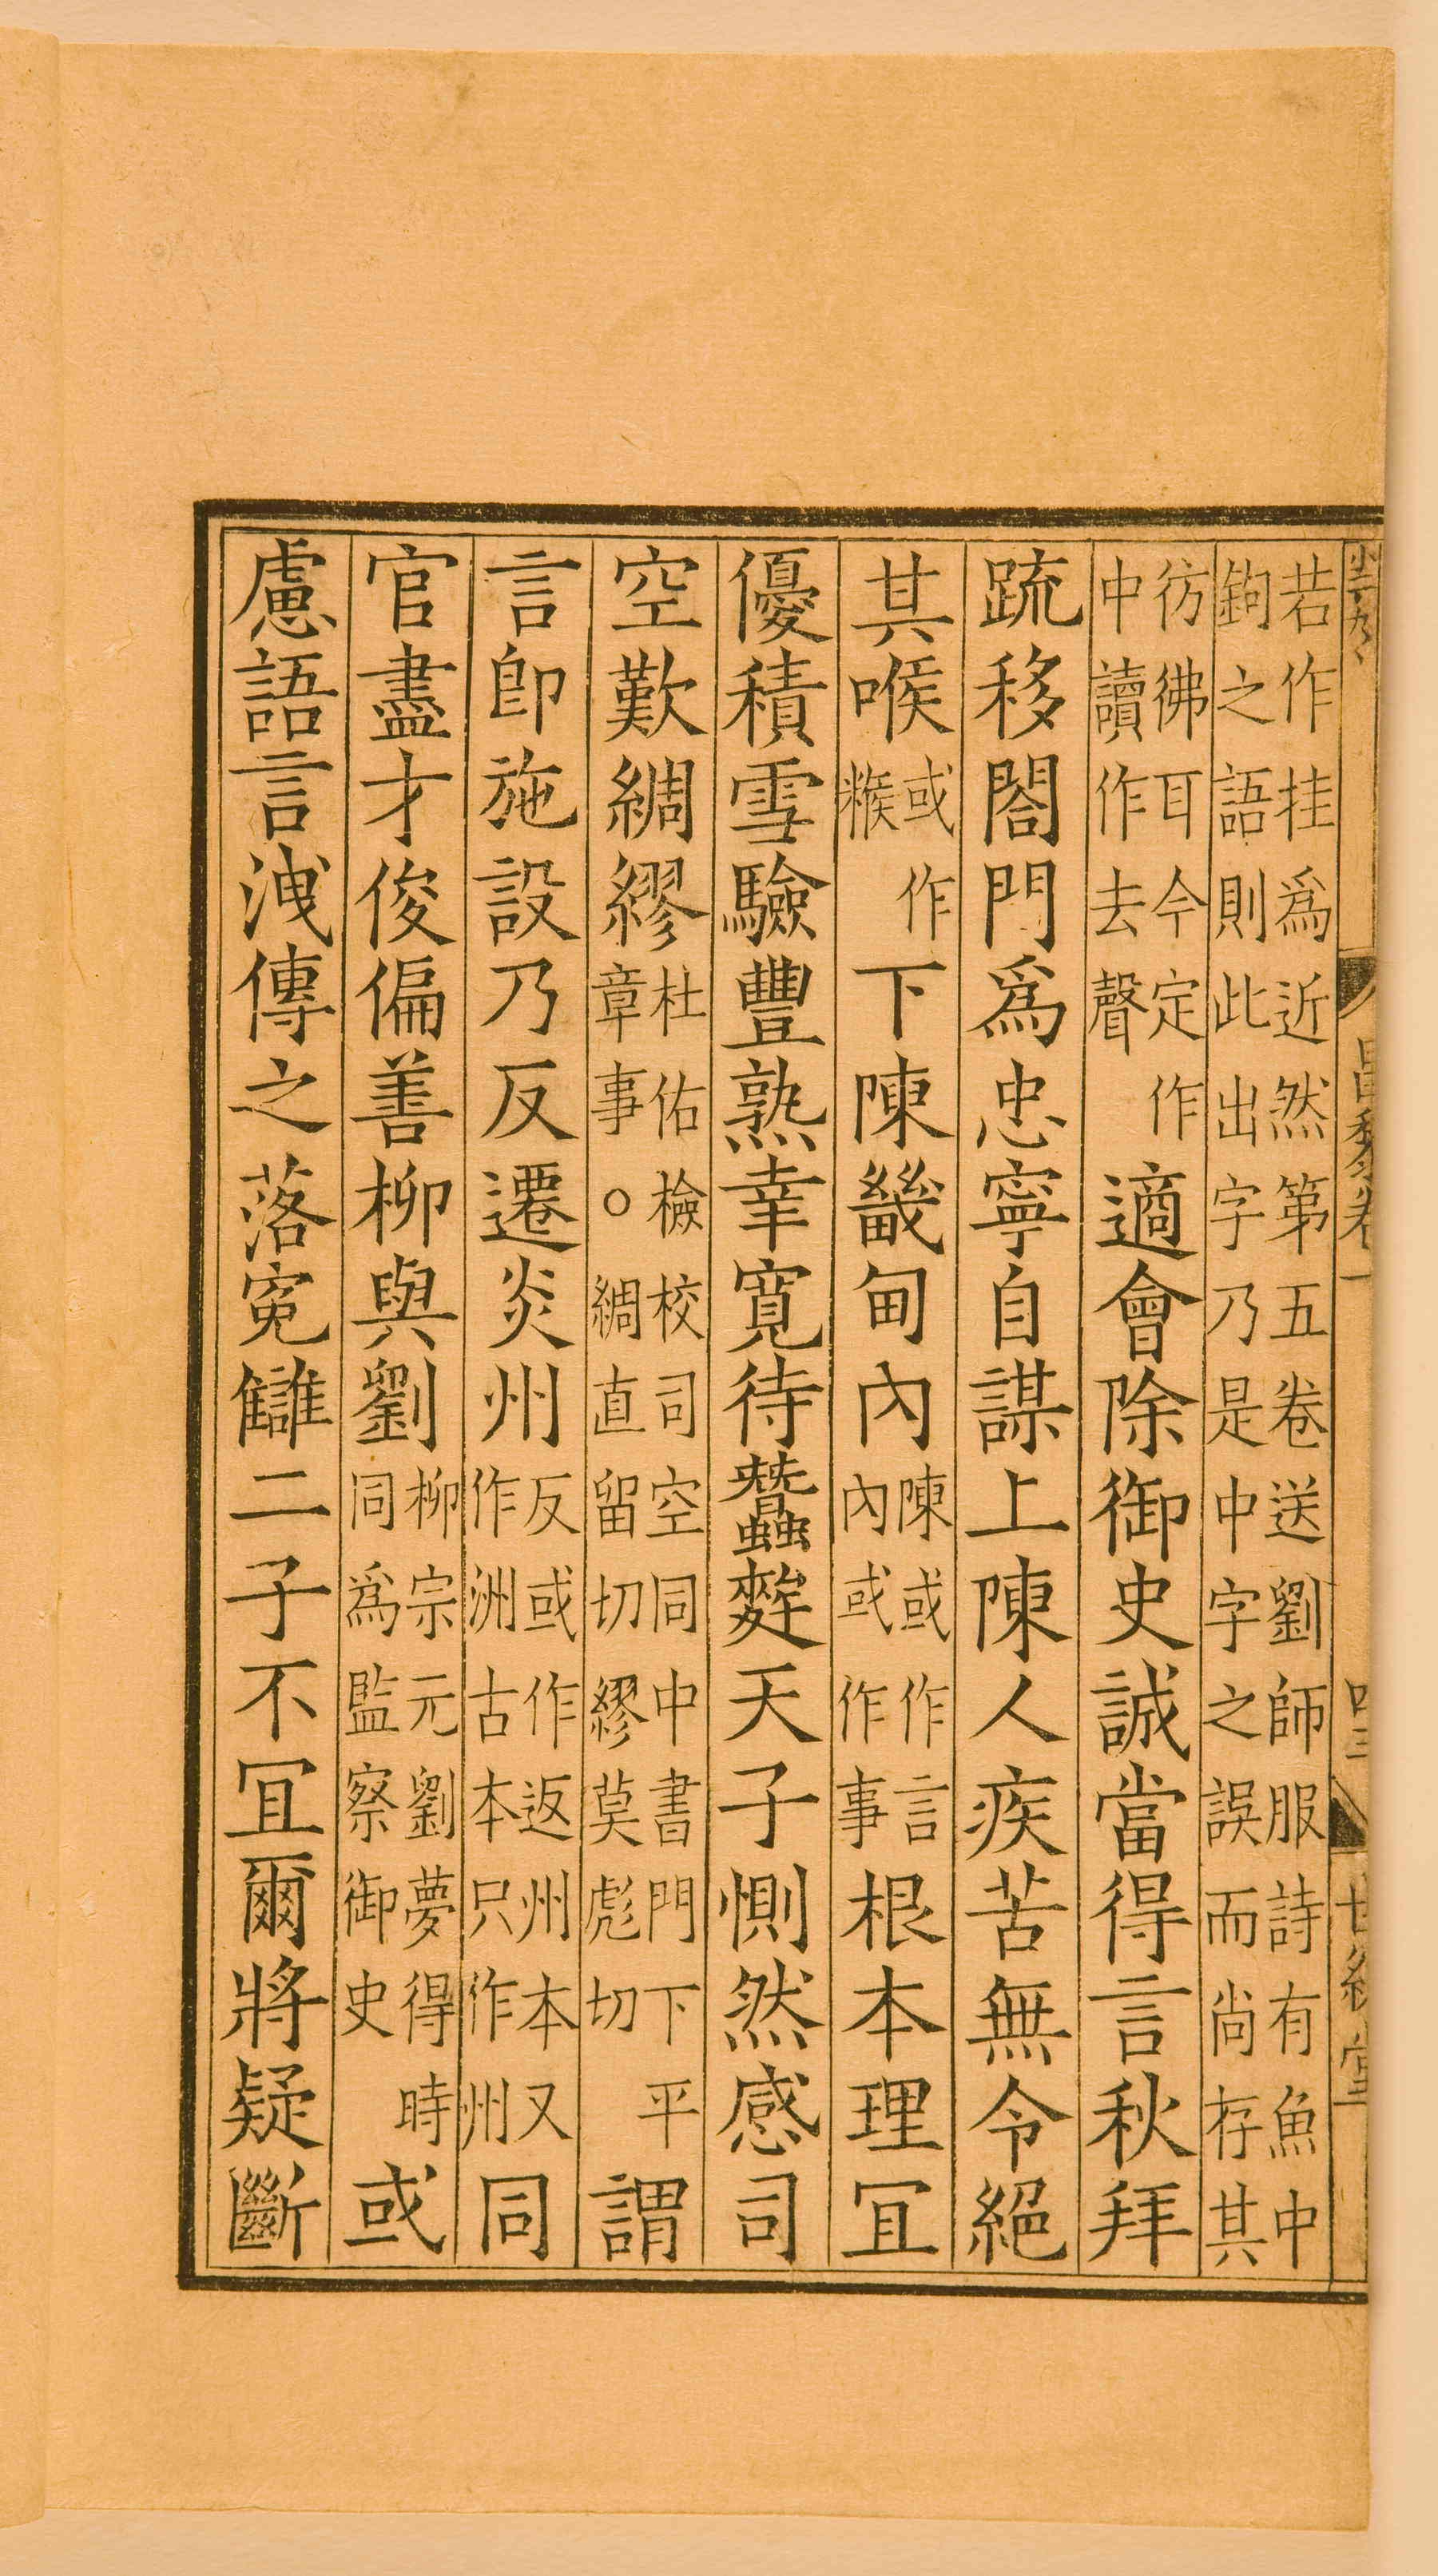 若作挂爲近然第五卷送劉師服詩有魚中
鉤之語則此出字乃是中字之誤而尚存其
彷彿耳今定作
中讀作去聲
適會除御史誠當得言秋拜
疏移閤門爲忠寧自謀上陳人疾苦無令絕
其喉
或作
糇
下陳畿甸內
陳或作言
內或作事
根本理宜
優積雪驗豐熟幸寬待蠶麰天子惻然感司
空歎綢繆
杜佑檢校司空同中書門下平
章事○綢直留切繆莫彪切
謂
言卽施設乃反遷炎州
反或作返州本又
作洲古本只作州
同
官盡才俊偏善柳與劉
柳宗元劉夢得時
同爲監察御史
或
慮語言洩傳之落冤讎二子不宜爾將疑斷
昌黎卷一
四三